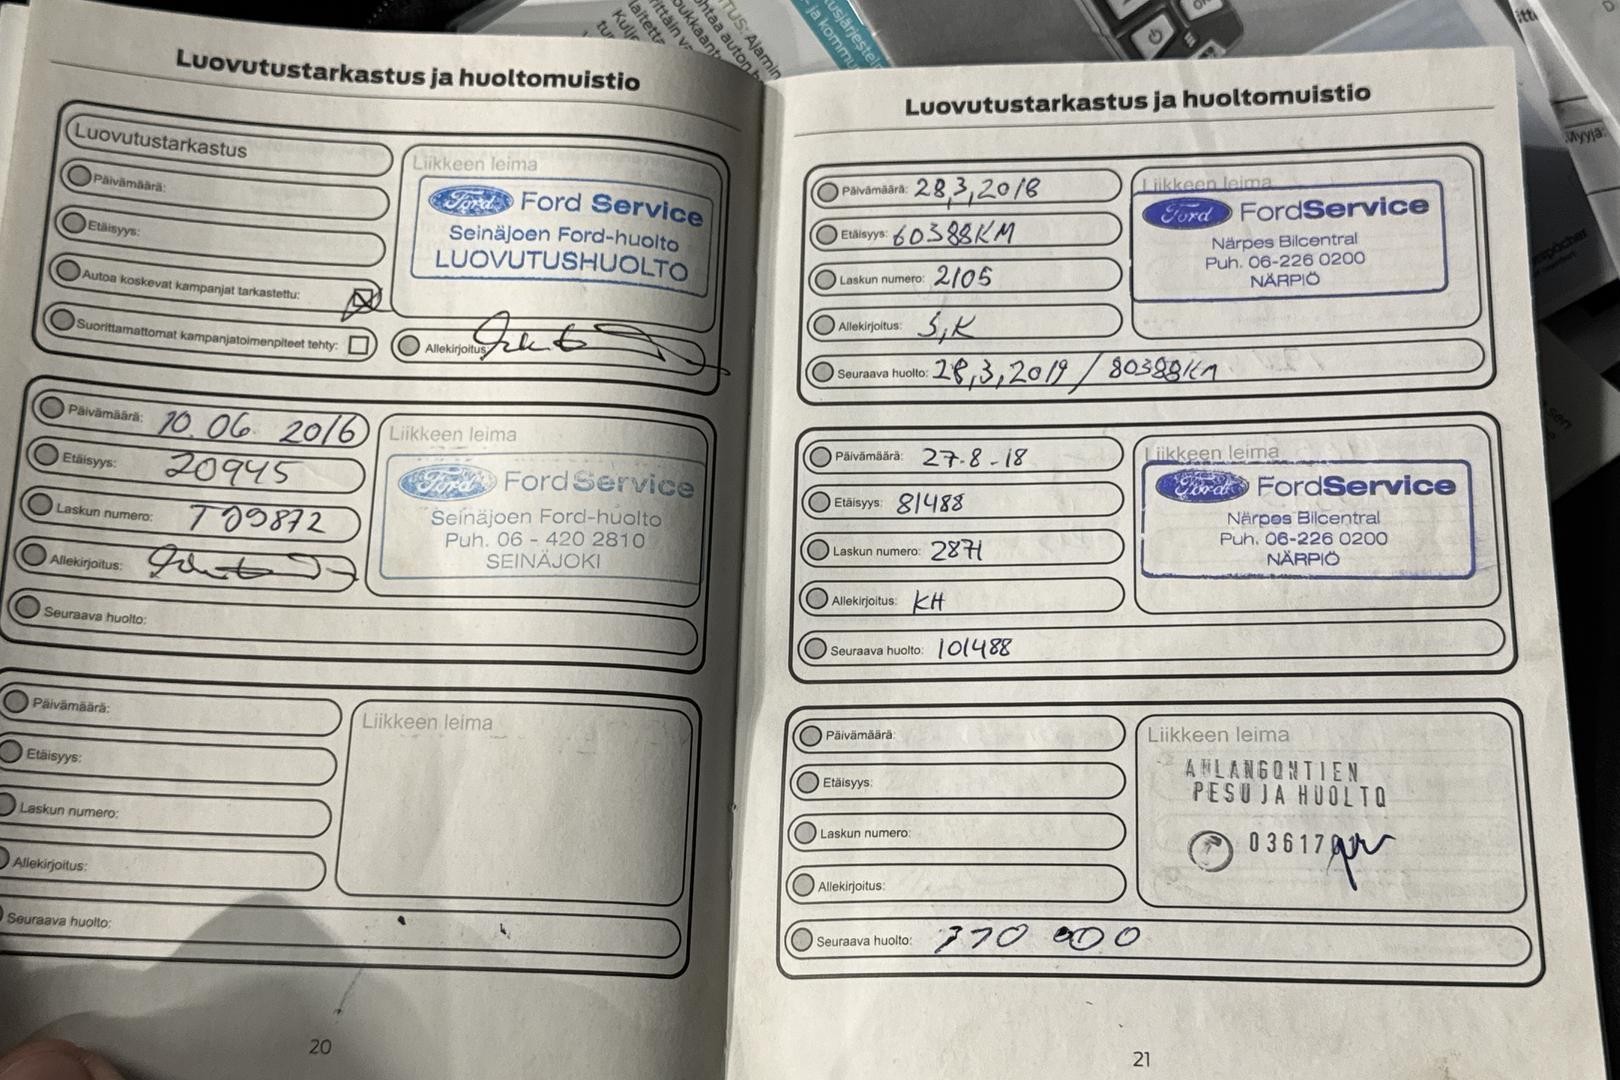 Luovutustarkastus ja huoltomuistio
Luovutustarkastus
Päivämäärä:
Etäisyys:
Autoa koskevat kampanjat tarkastettu:
Suorittamattomat kampanjatoimenpiteet tehty:
Liikkeen leima
Ford Ford Service
Seinäjoen Ford-huolto
LUOVUTUSHUOLTO
Allekirjoitus:
Päivämäärä: 10.06. 2016
Etäisyys: 20945
Laskun numero: T09872
Allekirjoitus:
Seuraava huolto:
Liikkeen leima
Ford FordService
Seinäjoen Ford-huolto
Puh. 06 - 420 2810
SEINÄJOKI
Päivämäärä:
Etäisyys:
Laskun numero:
Allekirjoitus:
Seuraava huolto:
Liikkeen leima
20
Luovutustarkastus ja huoltomuistio
Päivämäärä: 28,3,2018
Etäisyys: 60388KM
Laskun numero: 2105
Allekirjoitus: S,K
Seuraava huolto: 28,3,2019 / 80388KM
Liikkeen leima
Ford FordService
Närpes Bilcentral
Puh. 06-226 0200
NÄRPIÖ
Päivämäärä: 27-8-18
Etäisyys: 81488
Laskun numero: 2871
Allekirjoitus: KH
Seuraava huolto: 101488
Liikkeen leima
Ford FordService
Närpes Bilcentral
Puh. 06-226 0200
NÄRPIÖ
Päivämäärä:
Etäisyys:
Laskun numero:
Allekirjoitus:
Seuraava huolto:
Liikkeen leima
AHLANGONTIEN
PESU JA HUOLTO
21
Myyjä: